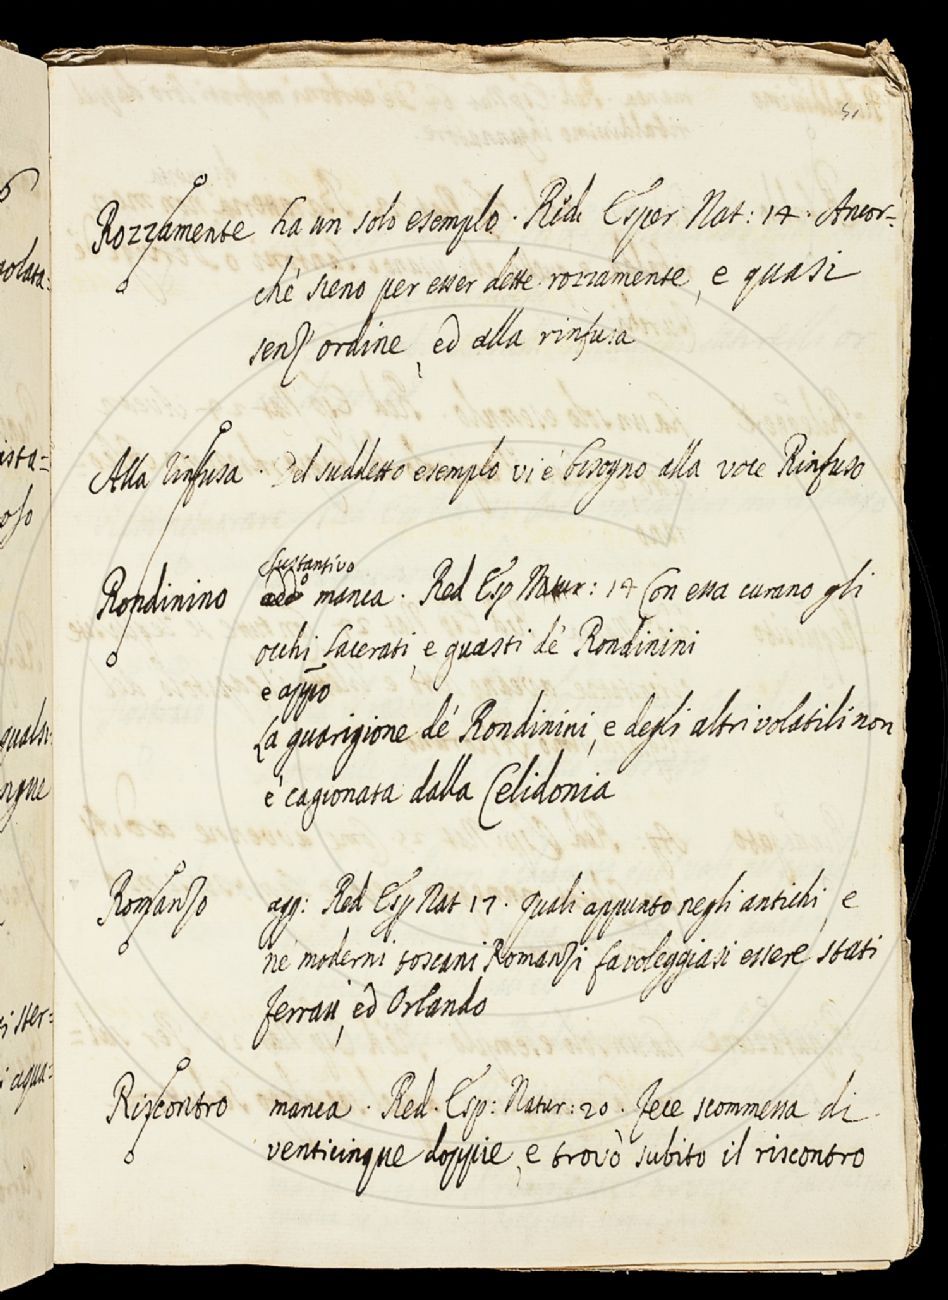 51
Rozzamente ha un solo esemplo. Red. Esper Nat: 14. Ancor-
chè sieno per esser dette rozzamente, e quasi
senz' ordine, ed alla rinfusa
Alla rinfusa. Del suddetto esemplo vi è bisogno alla voce Rinfuso
sustantivo
Rondinino manca. Red Esp Natur: 14 Con essa curano gli
occhi lacerati, e guasti de' Rondinini
e appo
La guarigione de' Rondinini, e degli altri volatili non
è cagionata dalla Celidonia
Romanzo agg: Red Esp Nat 17. quali appunto negli antichi, e
ne' moderni toscani Romanzi favoleggiasi essere stati
ferraù, ed Orlando
Riscontro manca. Red. Esp: Natur: 20. Fece scommessa di
venticinque doppie, e trovò subito il riscontro